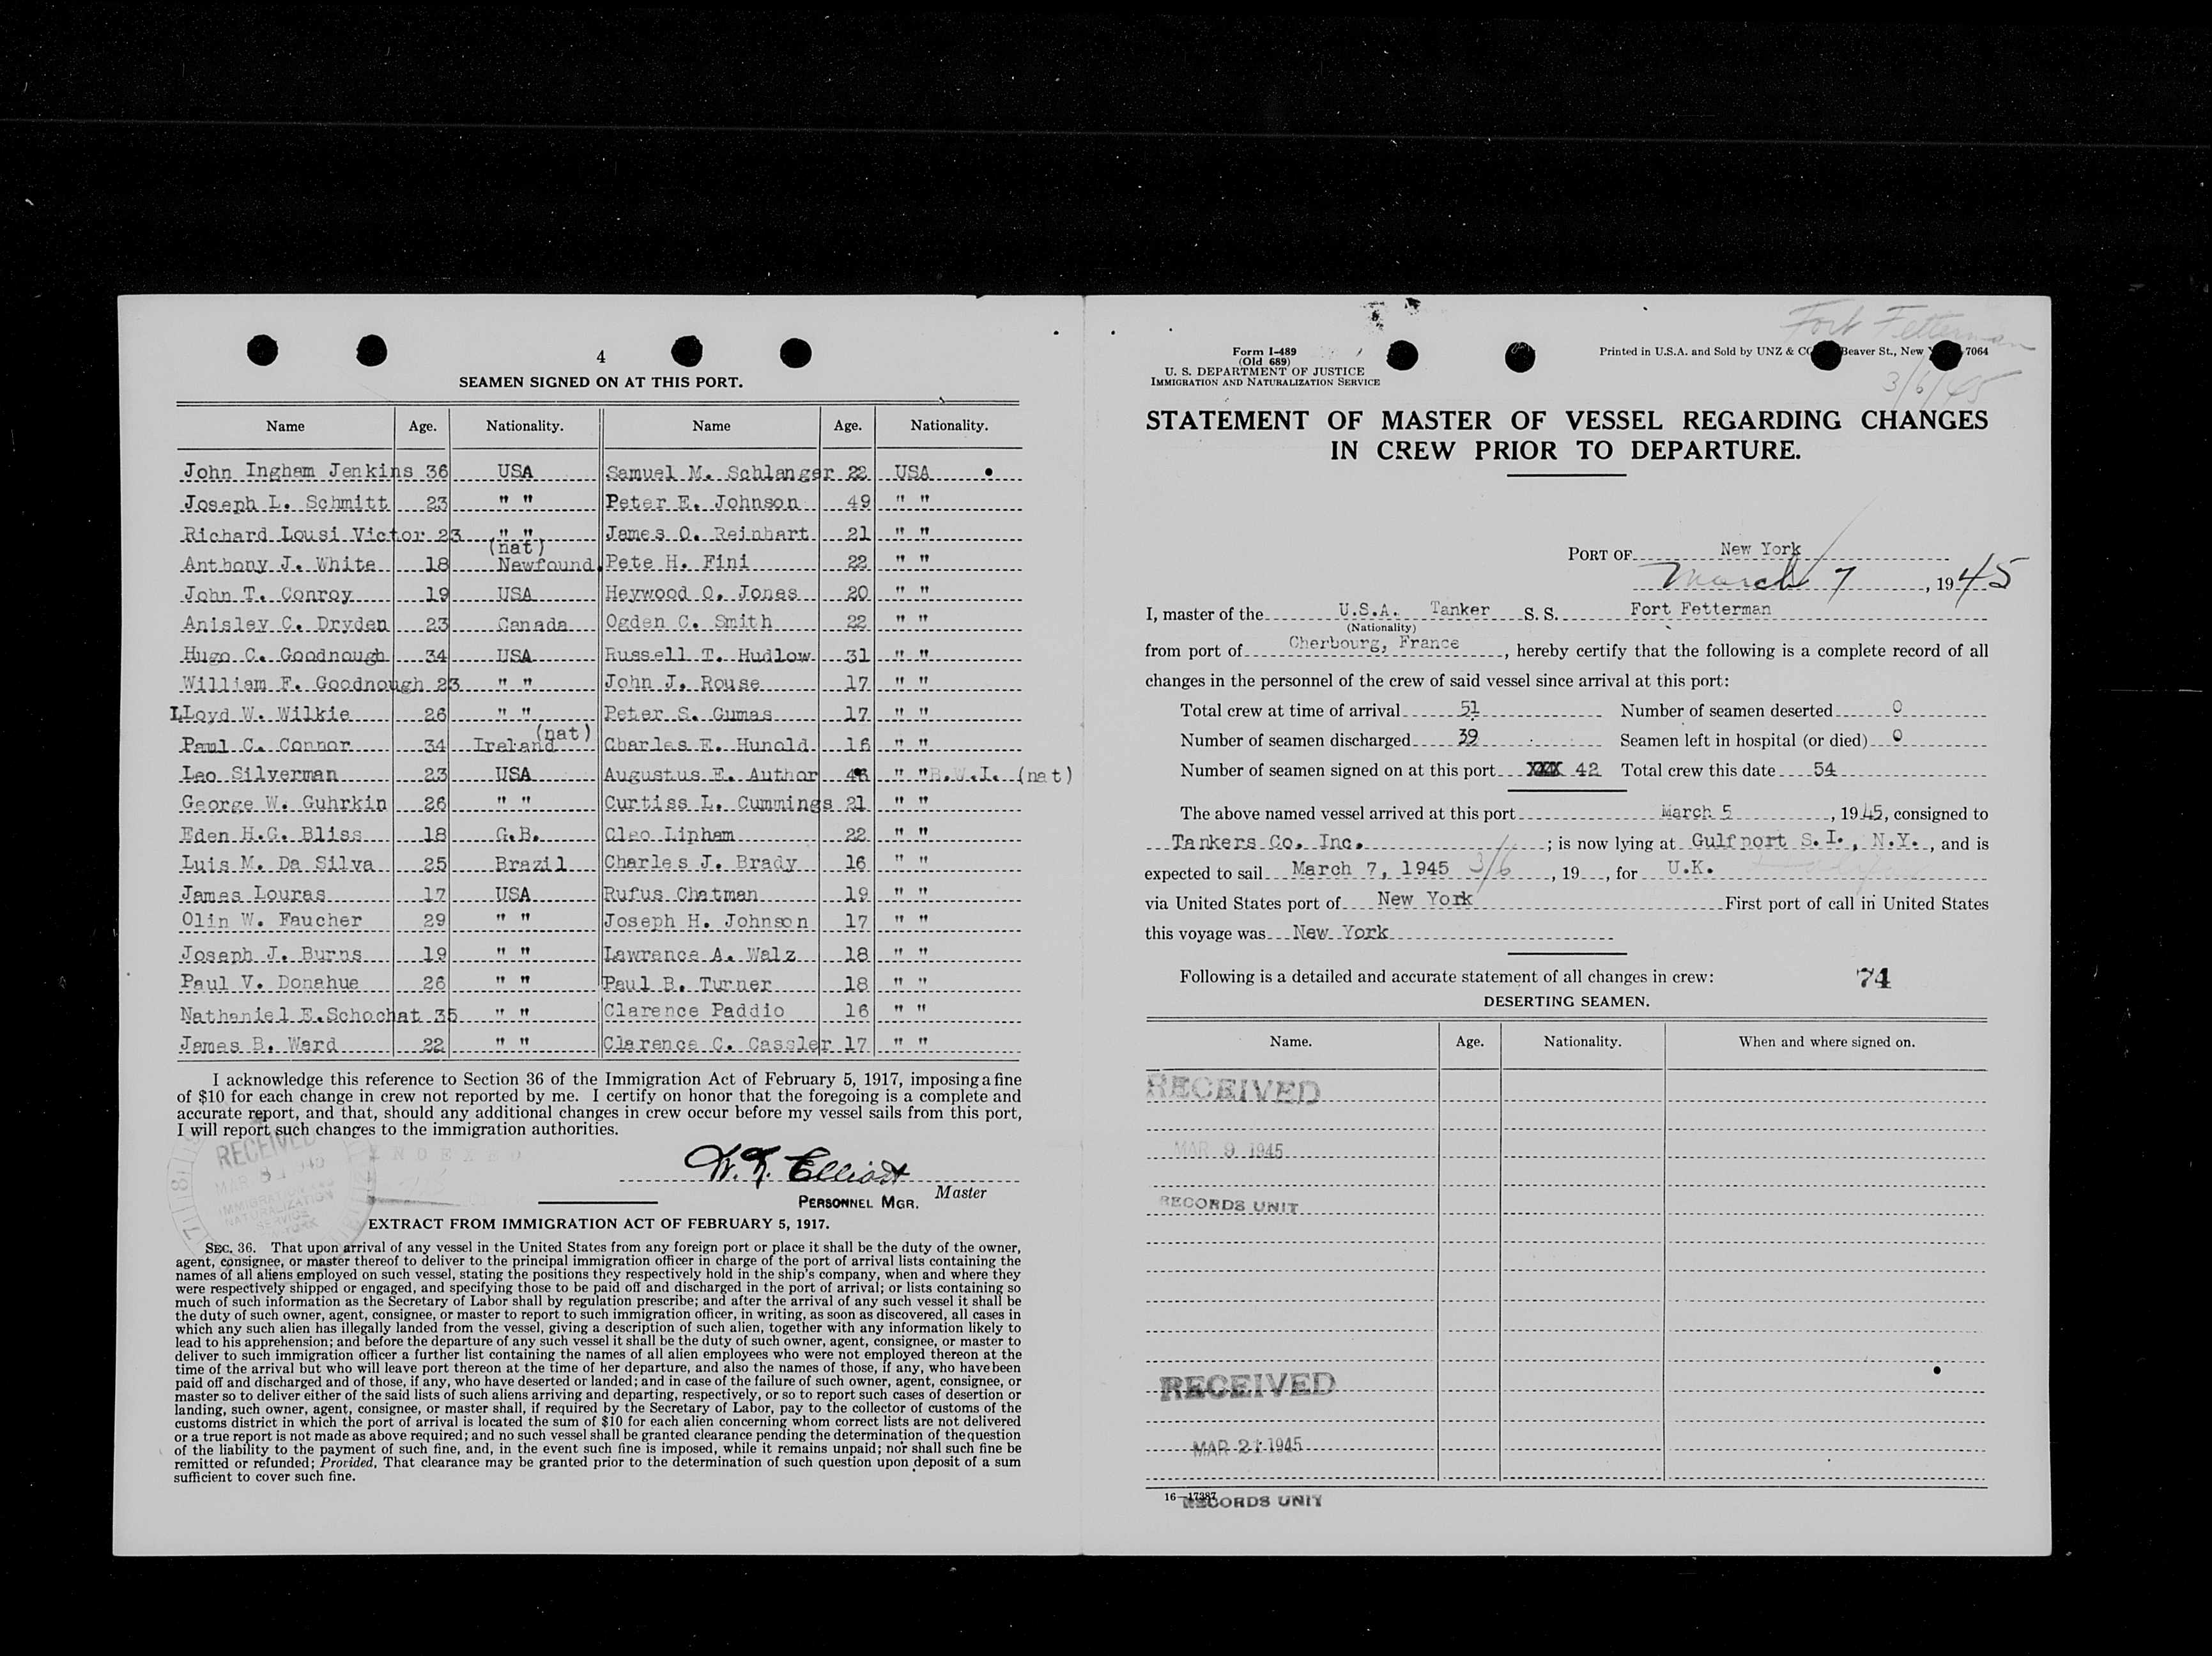 4
SEAMEN SIGNED ON AT THIS PORT.
Name Age. Nationality. Name Age. Nationality.
John Ingham Jenkins 36 USA Samuel M. Schlanger 22 USA
Joseph L. Schmitt 23 " " Peter E. Johnson 49 " "
Richard Lousi Victor 23 " " James O. Reinhart 21 " "
(nat)
Anthony J. White 18 Newfound. Pete H. Fini 22 " "
John T. Conroy 19 USA Heywood O. Jones 20 " "
Anisley C. Dryden 23 Canada Ogden C. Smith 22 " "
Hugo C. Goodnough 34 USA Russell T. Hudlow 31 " "
William F. Goodnough 23 " " John J. Rouse 17 " "
LLoyd W. Wilkie 26 " " Peter S. Gumas 17 " "
(nat)
Paul C. Connor 34 Ireland Charles E. Hunold 16 " "
Leo Silverman 23 USA Augustus E. Author " " B.W.I. (nat)
George W. Guhrkin 26 " " Curtiss L. Cummings 21 " "
Eden H.G. Bliss 18 G.B. Cleo Lipham 22 " "
Luis M. Da Silva 25 Brazil Charles J. Brady 16 " "
James Louras 17 USA Rufus Chatman 19 " "
Olin W. Faucher 29 " " Joseph H. Johnson 17 " "
Joseph J. Burns 19 " " Lawrence A. Walz 18 " "
Paul V. Donahue 26 " " Paul B. Turner 18 " "
Nathaniel E. Schochat 35 " " Clarence Paddio 16 " "
James B. Ward 22 " " Clarence C. Cassler 17 " "
I acknowledge this reference to Section 36 of the Immigration Act of February 5, 1917, imposing a fine
of $10 for each change in crew not reported by me. I certify on honor that the foregoing is a complete and
accurate report, and that, should any additional changes in crew occur before my vessel sails from this port,
I will report such changes to the immigration authorities.
RECEIVED
MAR
IMMIGRATION AND
NATURALIZATION
SERVICE
INDEXED
W. F. Elliott
PERSONNEL MGR. Master
EXTRACT FROM IMMIGRATION ACT OF FEBRUARY 5, 1917.
SEC. 36. That upon arrival of any vessel in the United States from any foreign port or place it shall be the duty of the owner,
agent, consignee, or master thereof to deliver to the principal immigration officer in charge of the port of arrival lists containing the
names of all aliens employed on such vessel, stating the positions they respectively hold in the ship's company, when and where they
were respectively shipped or engaged, and specifying those to be paid off and discharged in the port of arrival; or lists containing so
much of such information as the Secretary of Labor shall by regulation prescribe; and after the arrival of any such vessel it shall be
the duty of such owner, agent, consignee, or master to report to such immigration officer, in writing, as soon as discovered, all cases in
which any such alien has illegally landed from the vessel, giving a description of such alien, together with any information likely to
lead to his apprehension; and before the departure of any such vessel it shall be the duty of such owner, agent, consignee, or master to
deliver to such immigration officer a further list containing the names of all alien employees who were not employed thereon at the
time of the arrival but who will leave port thereon at the time of her departure, and also the names of those, if any, who have been
paid off and discharged and of those, if any, who have deserted or landed; and in case of the failure of such owner, agent, consignee, or
master so to deliver either of the said lists of such aliens arriving and departing, respectively, or so to report such cases of desertion or
landing, such owner, agent, consignee, or master shall, if required by the Secretary of Labor, pay to the collector of customs of the
customs district in which the port of arrival is located the sum of $10 for each alien concerning whom correct lists are not delivered
or a true report is not made as above required; and no such vessel shall be granted clearance pending the determination of the question
of the liability to the payment of such fine, and, in the event such fine is imposed, while it remains unpaid; nor shall such fine be
remitted or refunded; Provided, That clearance may be granted prior to the determination of such question upon deposit of a sum
sufficient to cover such fine.
Fort Fetterman
3/6/45
Form I-489
(Old 689)
U. S. DEPARTMENT OF JUSTICE
IMMIGRATION AND NATURALIZATION SERVICE
Printed in U.S.A. and Sold by UNZ & CO Beaver St., New 7064
STATEMENT OF MASTER OF VESSEL REGARDING CHANGES
IN CREW PRIOR TO DEPARTURE.
PORT OF New York
March 7, 1945
I, master of the U.S.A. Tanker S. S. Fort Fetterman
(Nationality)
from port of Cherbourg, France, hereby certify that the following is a complete record of all
changes in the personnel of the crew of said vessel since arrival at this port:
Total crew at time of arrival 51 Number of seamen deserted 0
Number of seamen discharged 39 Seamen left in hospital (or died) 0
Number of seamen signed on at this port XXX 42 Total crew this date 54
The above named vessel arrived at this port March 5, 1945, consigned to
Tankers Co. Inc.; is now lying at Gulfport S.I., N.Y., and is
expected to sail March 7, 1945 3/6, 19, for U.K.
via United States port of New York First port of call in United States
this voyage was New York
Following is a detailed and accurate statement of all changes in crew: 74
DESERTING SEAMEN.
Name. Age. Nationality. When and where signed on.
RECEIVED
MAR 9 1945
RECORDS UNIT
RECEIVED
MAR 21 1945
16—17387
RECORDS UNIT